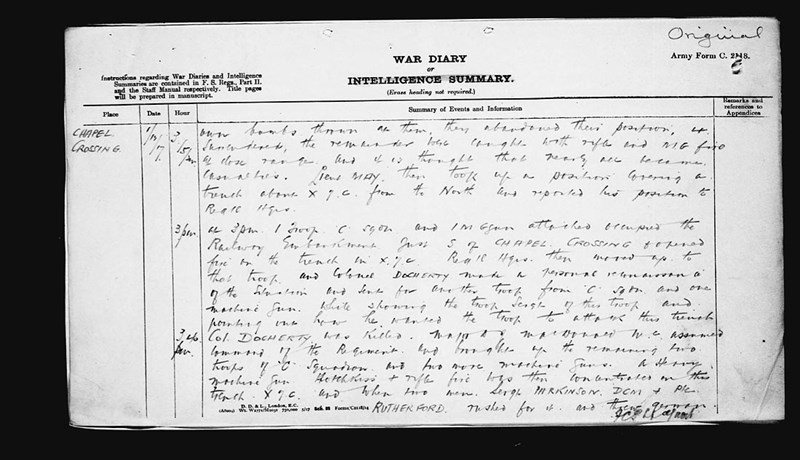 Original
WAR DIARY
or
INTELLIGENCE SUMMARY.
(Erase heading not required.)
Army Form C. 2118.
Instructions regarding War Diaries and Intelligence
Summaries are contained in F. S. Regs., Part II.
and the Staff Manual respectively. Title pages
will be prepared in manuscript.
Summary of Events and Information
Remarks and
references to
Appendices
Place
Date
Hour
CHAPEL
CROSSING
bombs thrown at them, they abandoned their position, &
surrendered, the remainder were caught with rifle and M.G. fire
at close range. and it is thought that nearly all became
casualties. Lieut MAY. then took up a position covering a
trench above X 7.c. from the North and reported his position to
Reg'l Hqrs.
3 pm.
at 3pm. 1 Troop 'C' Sqdn and 1 M Gun attached occupied the
Railway Embankment just S of CHAPEL CROSSING & opened
fire on the trench in X.7.c Reg'l Hqrs. then moved up to
that troop and Colonel DOCHERTY made a personal reconnaissance
of the situation and sent for another troop from 'C' Sqdn and one
machine Gun. While showing the troop Sergt of this troop and
pointing out how he wanted the troop to attack this trench
Col. DOCHERTY was killed. Major MacDonald M.C. assumed
command of the Regiment. and brought up the remaining two
troops of 'C' Squadron and two more machine Guns. A Heavy
machine Gun Hotchkiss & rifle fire was then concentrated on this
trench. X 7.C. and when two men Sergt PARKINSON. DCM & Pte
RUTHERFORD. rushed for it. and the German
D. D. & L., London, E.C.